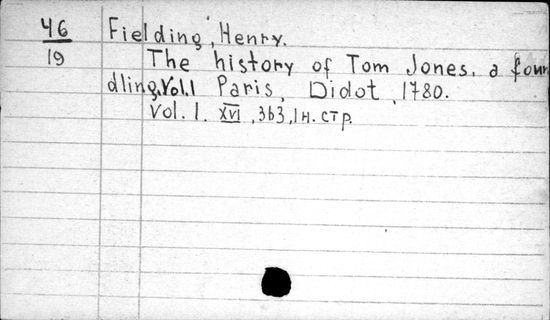 46 Fielding, Henry.
19 The history of Tom Jones, a foun
dling. Vol.1 Paris, Didot, 1780.
Vol. 1. XVI, 363, 1 н. стр.